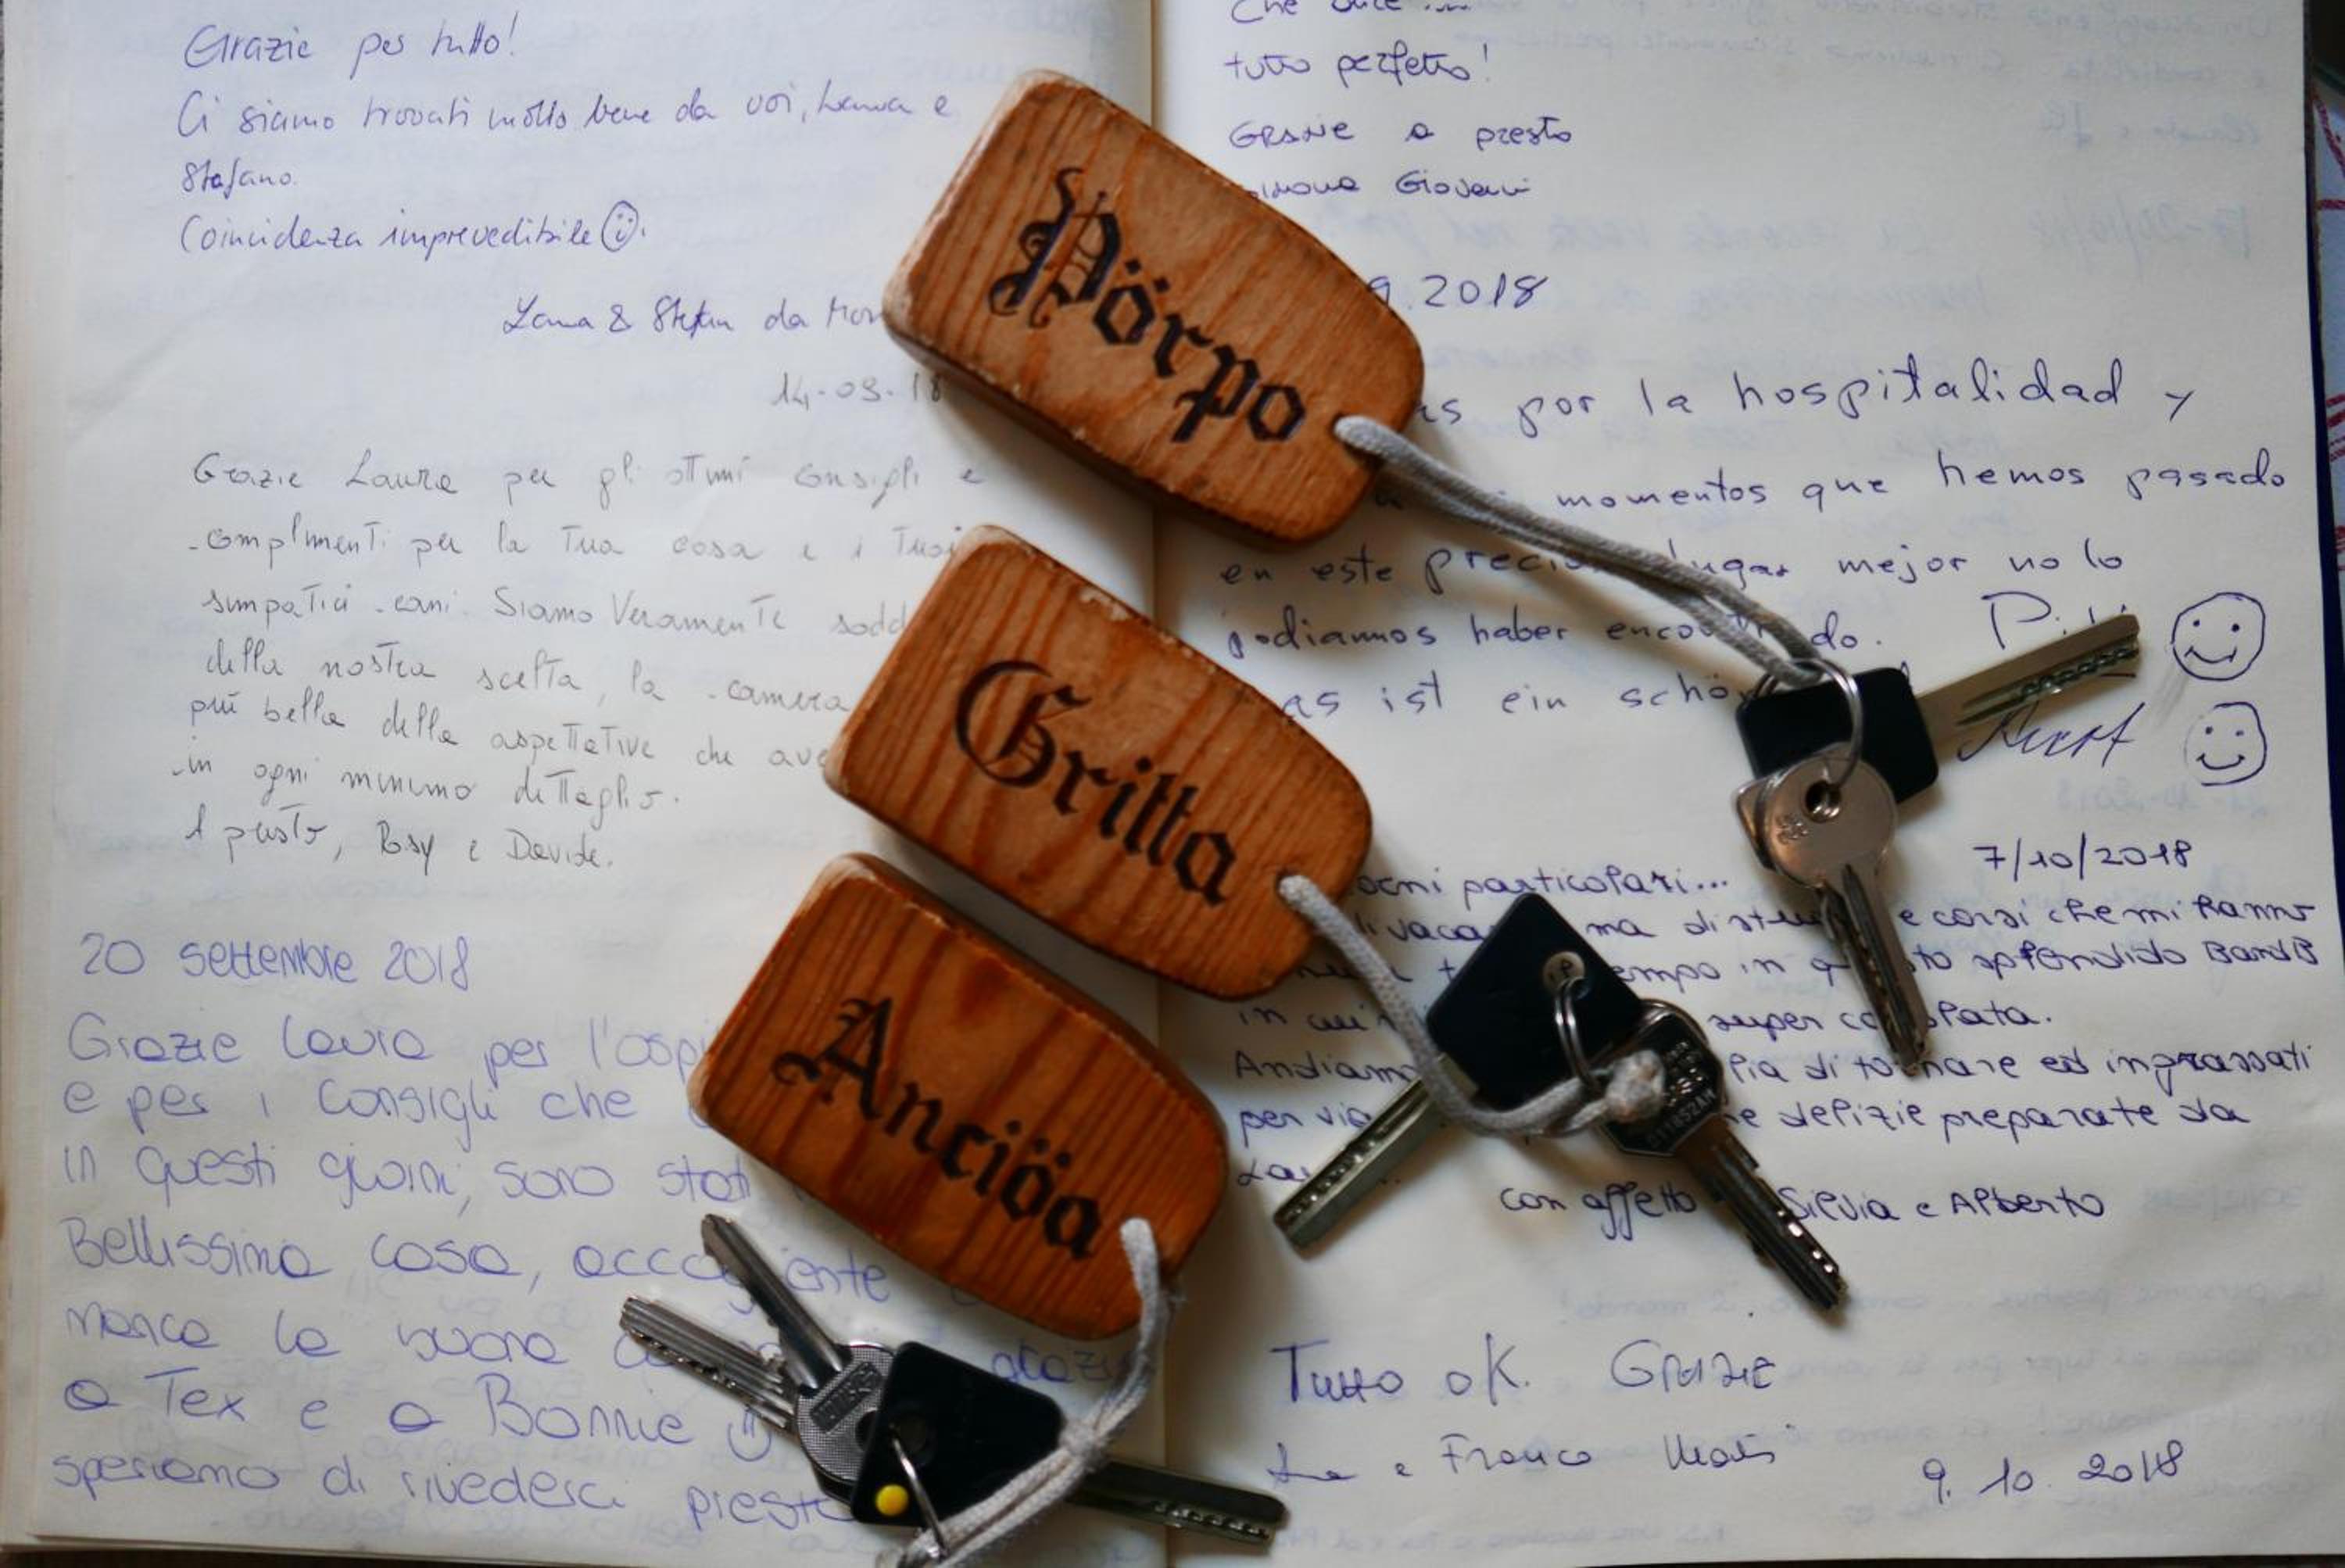 Grazie per tutto!
Ci siamo trovati molto bene da voi, Lanua e
Stefano.
Coincidenza imprevedibile
& Stefan da
14-09-18
Grazie Laura per gli ottimi consigli e
complimenti per la tua casa e i tuoi
simpatici cani. Siamo Veramente
della nostra scelta, la camera
più bella delle aspettative che
in ogni minimo dettaglio.
A presto, Rosy e Davide.
20 settembre 2018
Grazie Laura per
e per i consigli che
in questi giorni, sono
Bellissima casa,
manca la buona
a Tex e a Bonnie
speriamo di rivederci presto
Che
tutto perfetto!
GRAZIE a presto
Giovanni
9.2018
por la hospitalidad y
momentos que hemos pasado
en este lugar mejor no lo
podiamos haber encontrado.
ist ein
7/10/2018
particolari...
ma e corsi che mi hanno
in questo splendido BandB
in cui super
Andiamo di tornare ed ingrassati
per via delizie preparate da
con affetto Silvia e Alberto
Tutto ok. GRAZIE
e Franco
9. 10. 2018
Pörpo
Gritta
Anciöa